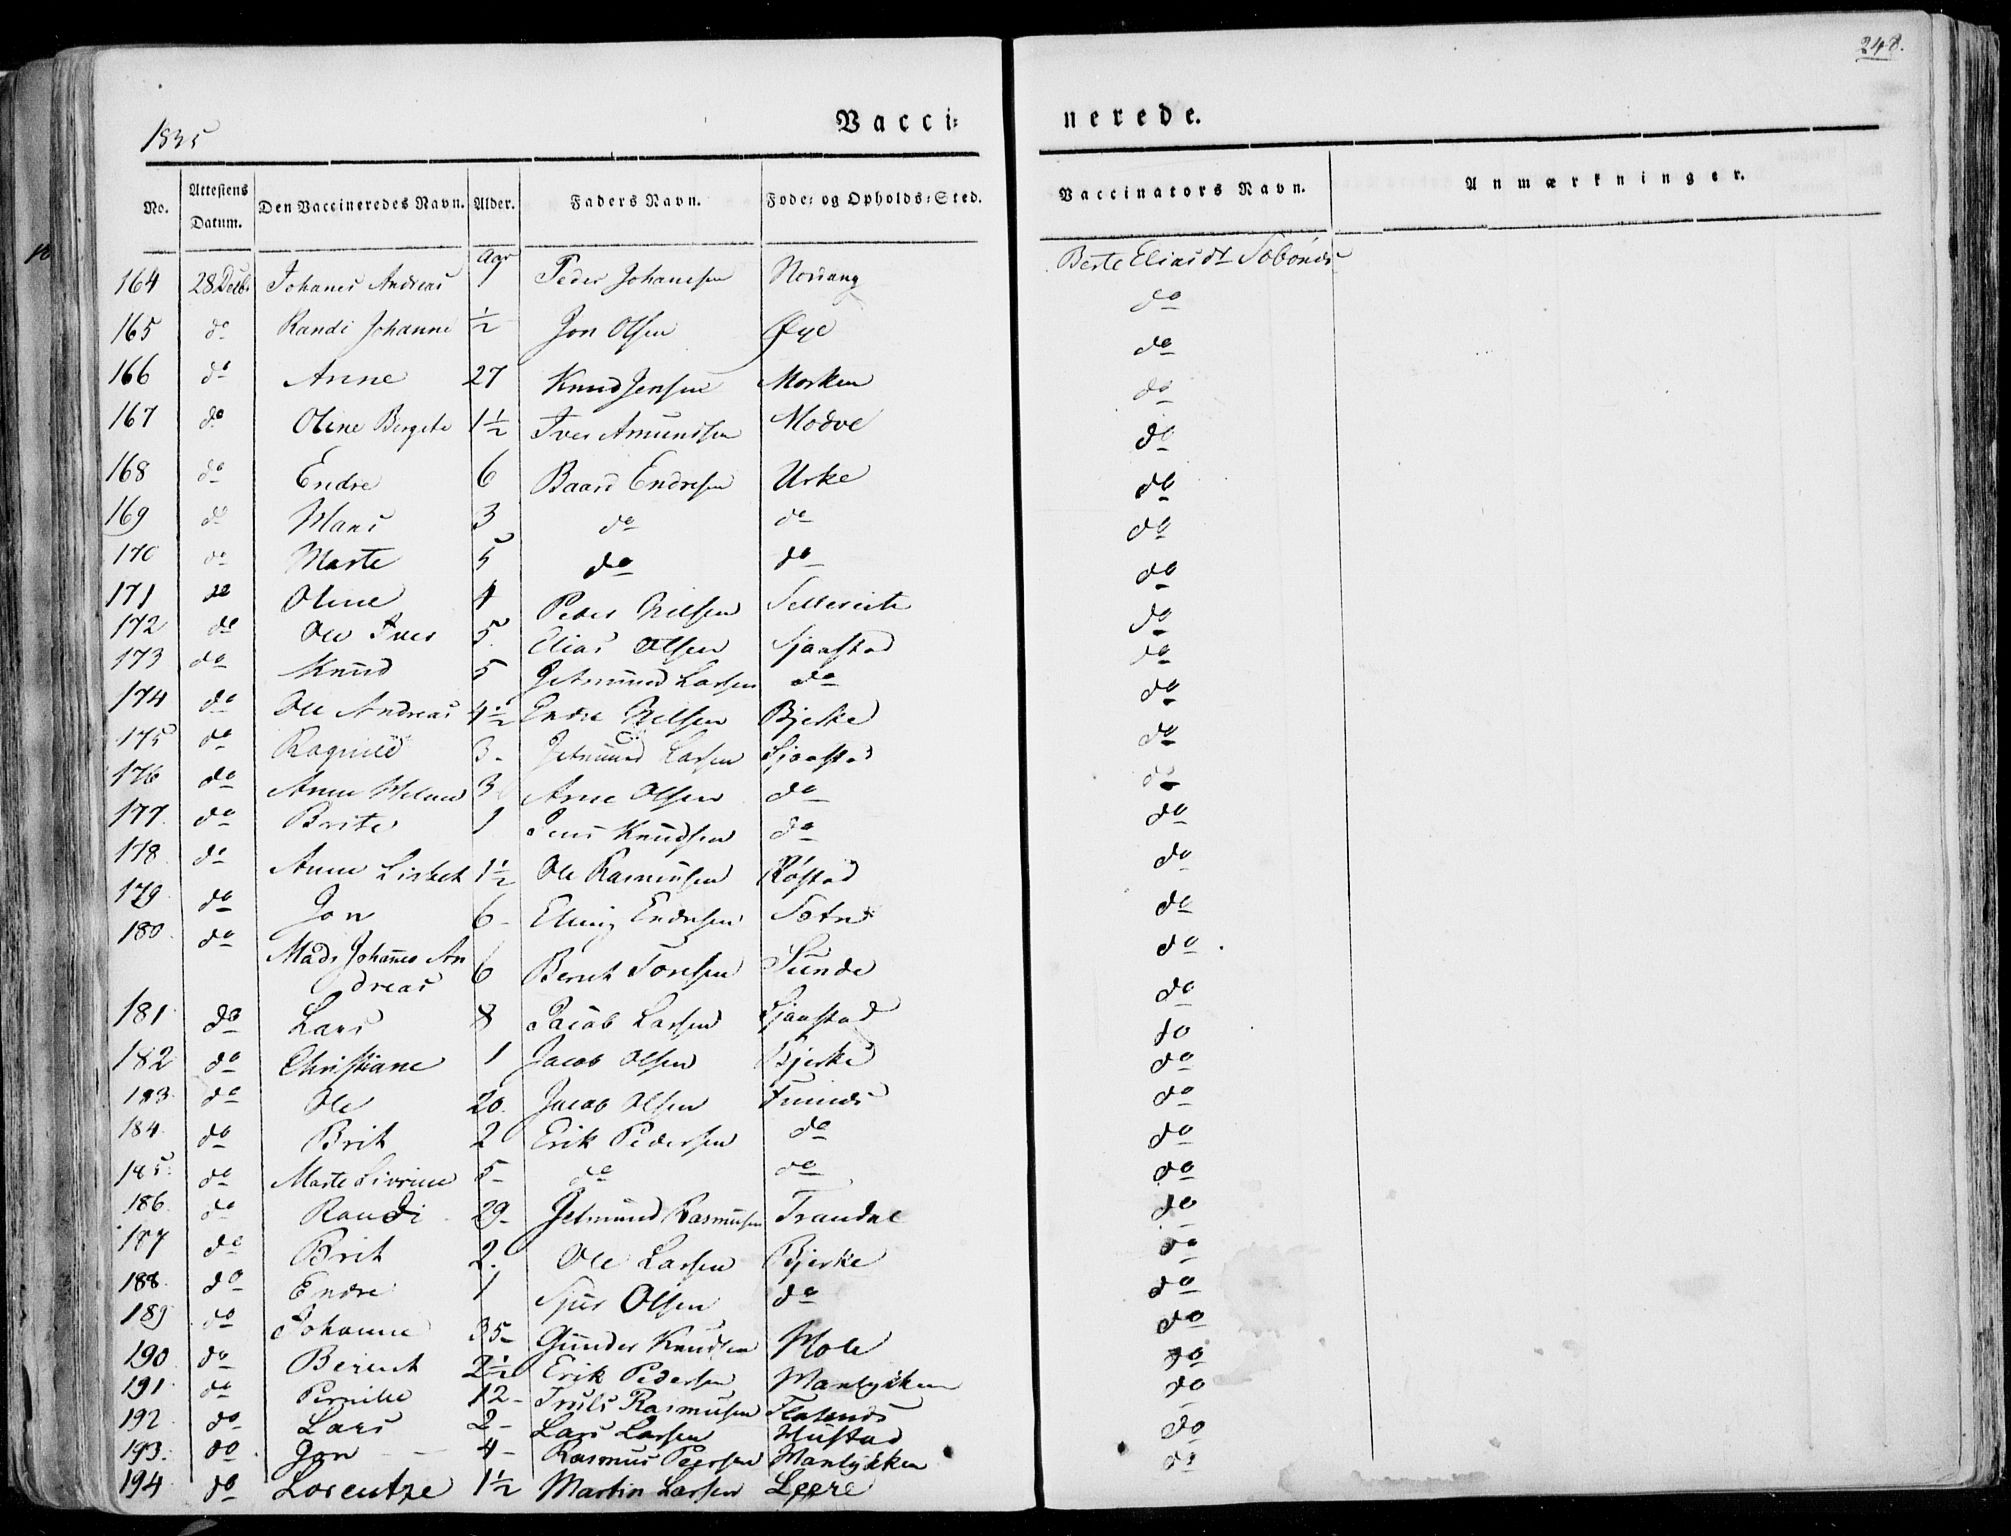 248.
1835
Vacci= nerede.
No. Attestens Datum. Den Vaccineredes Navn. Alder. Faders Navn. Føde= og Opholds=Sted. Vaccinators Navn. Anmærkninger.
Aar
164 28 Decbr Johanes Andreas 1 Peder Johanesen Norrang Berte Eliasdt
165 do Randi Johanne ½ Jon Olsen Øye do
166 do Anne 27 Knud Jensen Morken do
167 do Oline Bergete 1½ Iver Amundsen Modve do
168 do Endre 6 Baard Endresen Urke do
169 do Hans 3 do do do
170 do Marte 5 do do do
171 do Oline 4 Peder Nilsen do
172 do Ole Iver 5. Elias Olsen Sjaastad do
173 do Knud 5 Jetmund Larsen do do
174 do Ole Andreas 4½ Endre Nilsen Bjerke do
175 do Ragnild 3- Jetmund Larsen Sjaastad do
176 do Anne Helene 3 Arne Olsen do do
177. do Brite 1 Jens Knudsen do do
178. do Anne Lisbet 1½ Ole Rasmusen Røstad do
179. do Jon 6- Elling Endresen do
180. do Mads Johannes An
dreas 6 Bernt Toresen Sunde do
181 do Lars 8 Jacob Larsen Sjaastad do
182 do Christiane 1 Jacob Olsen Bjerke do
183. do Ole 20. Jacob Olsen do
184. do Brit 2 Erik Pedersen do do
185. do Marte Sivrine 5- do do do
186. do Randi 29- Jetmund Rasmusen Trandal do
187 do Brit 2. Ole Larsen Bjerke do
188. do Endre 1 Sjur Olsen do do
189 do Johanne 35- Gunder Knudsen Hole do
190. do Berent 2½ Erik Pedersen Manlykken do
191. do Pernille 12- Truls Rasmusen do
192. do Lars 2- Lars Larsen Hustad do
193. do Jon 4- Rasmus Peersen Manlykken do
194 do Lorentze 1½ Martin Larsen Leere do